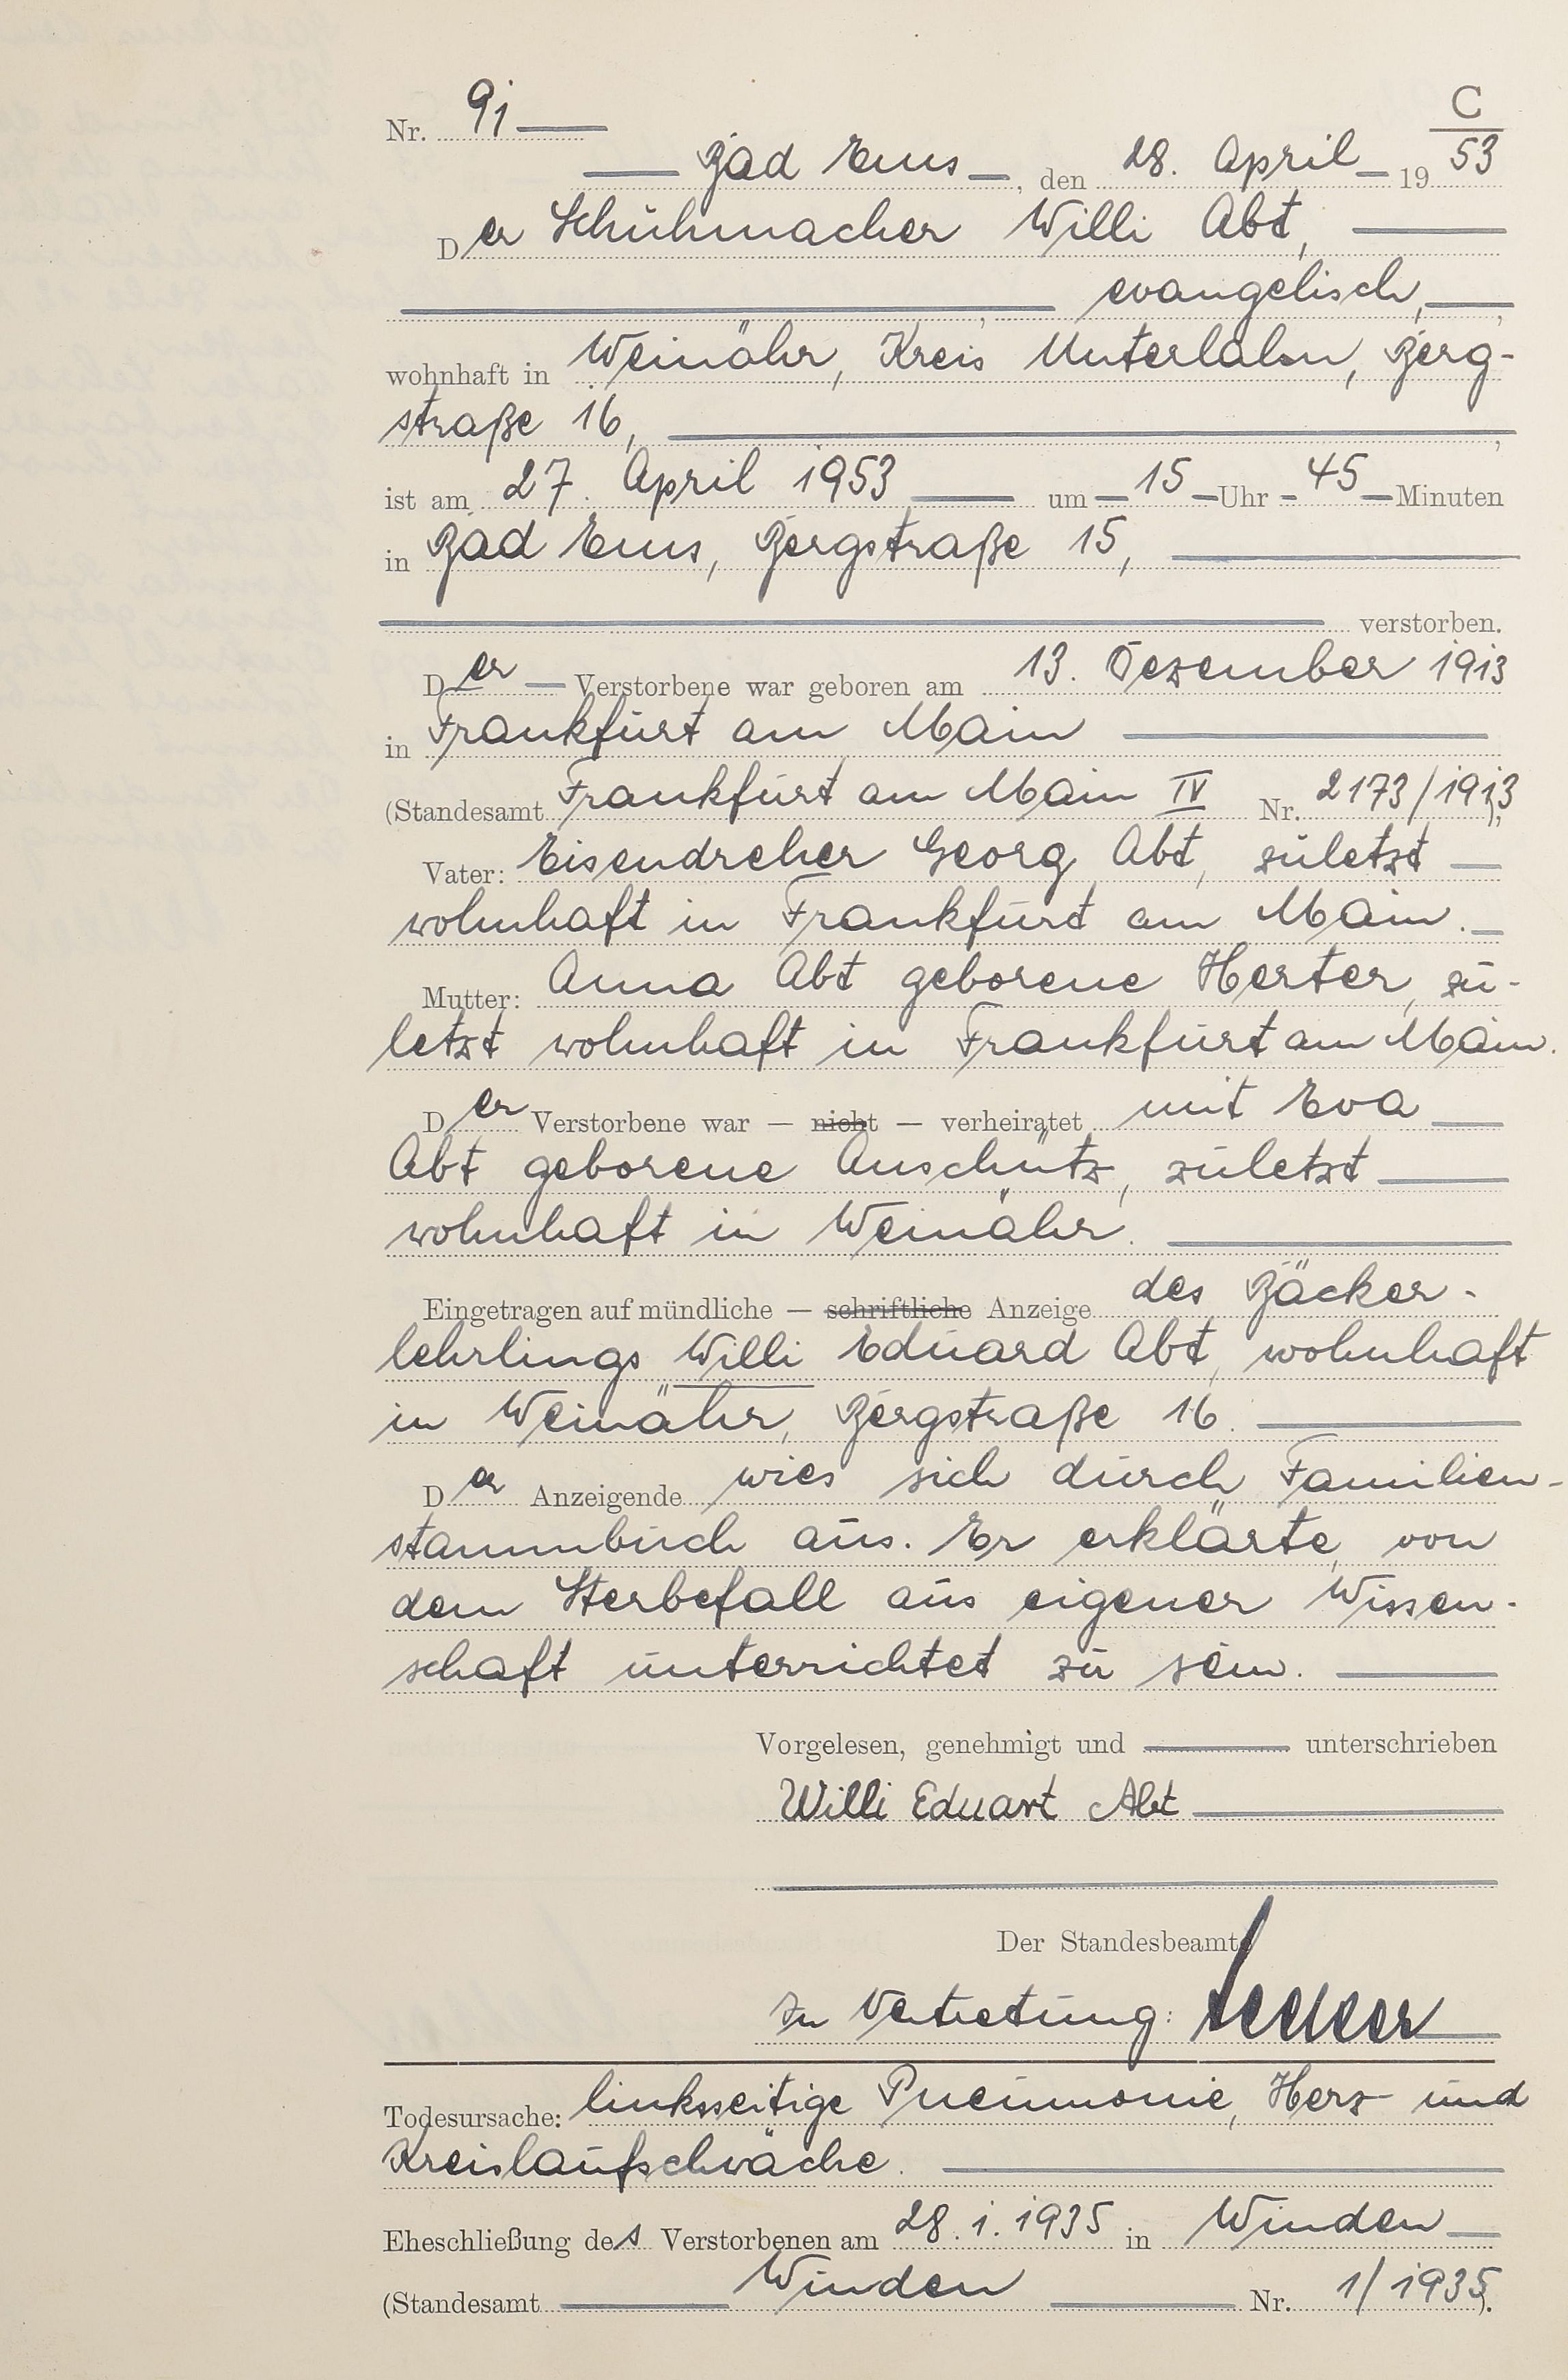 C
Nr. 91
Bad Ems, den 28. April 1953
Der Schuhmacher Willi Abt,
evangelisch,
wohnhaft in Weinähr, Kreis Unterlahn, Berg-
straße 16,
ist am 27. April 1953 um 15 Uhr 45 Minuten
in Bad Ems, Bergstraße 15,
verstorben.
Der Verstorbene war geboren am 13. Dezember 1913
in Frankfurt am Main
(Standesamt Frankfurt am Main IV Nr. 2173/1913),
Vater: Eisendreher Georg Abt, zuletzt
wohnhaft in Frankfurt am Main.
Mutter: Anna Abt geborene Herter, zu-
letzt wohnhaft in Frankfurt am Main.
Der Verstorbene war — nicht — verheiratet mit Eva
Abt geborene Anschütz, zuletzt
wohnhaft in Weinähr.
Eingetragen auf mündliche — schriftliche Anzeige des Bäcker-
lehrlings Willi Eduard Abt, wohnhaft
in Weinähr, Bergstraße 16.
Der Anzeigende wies sich durch Familien-
stammbuch aus. Er erklärte, von
dem Sterbefall aus eigener Wissen-
schaft unterrichtet zu sein.
Vorgelesen, genehmigt und unterschrieben
Willi Eduart Abt
Der Standesbeamte
In Vertretung:
Todesursache: linksseitige Pneumonie, Herz- und
Kreislaufschwäche.
Eheschließung des Verstorbenen am 28.1.1935 in Winden
(Standesamt Winden Nr. 1/1935).